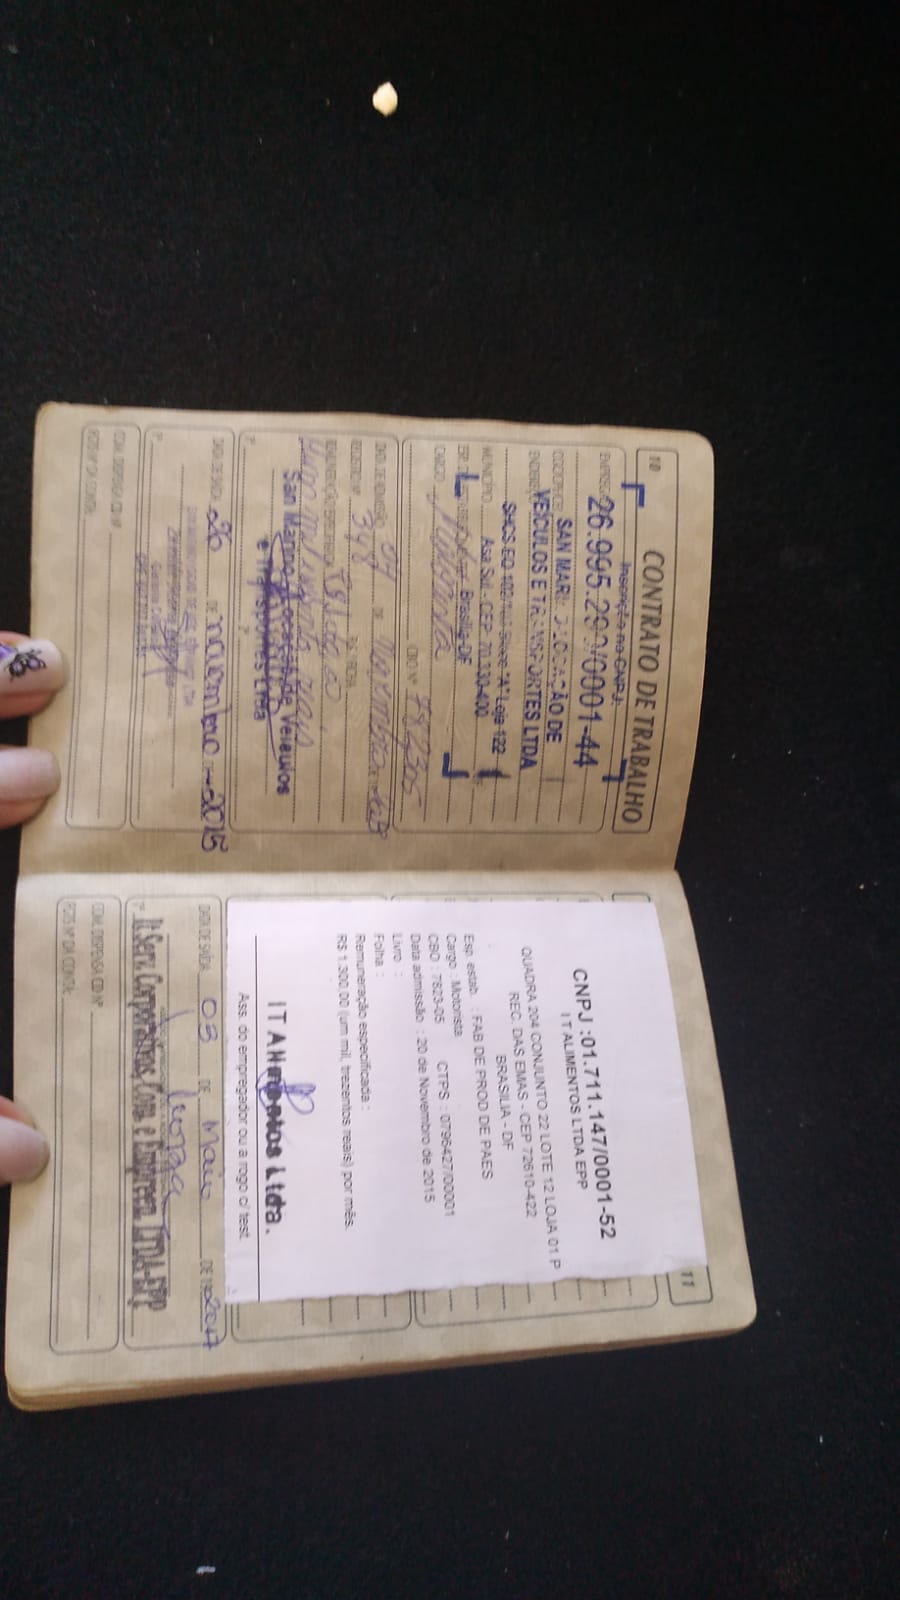 10
CONTRATO DE TRABALHO
Inscrição no CNPJ:
26.995.299/0001-44
SAN MARINO LOCAÇÃO DE
VEÍCULOS E TRANSPORTES LTDA
Asa Sul - CEP 70.330-400
MUNICÍPIO
Brasília-DF
CARGO Motorista
CBO Nº 782305
DATA DE ADMISSÃO 09 DE novembro DE
REGISTRO Nº 348 FLS/FICHA
REMUNERAÇÃO ESPECIFICADA
San Marino Locação de Veículos
e Transportes Ltda
DATA DE SAÍDA 26 DE novembro DE 2015
COM. DISPENSA CD Nº
FGTS Nº DA CONTA
11
CNPJ :01.711.147/0001-52
I T ALIMENTOS LTDA EPP
QUADRA 204 CONJUNTO 22 LOTE 12 LOJA 01 P
REC. DAS EMAS - CEP 72610-422
BRASILIA - DF
Esp. estab. : FAB DE PROD DE PAES
Cargo : Motorista
CBO : 7823-05 CTPS : 0796427/00001
Data admissão : 20 de Novembro de 2015
Livro :
Folha :
Remuneração especificada :
R$ 1.300,00 (um mil, trezentos reais) por mês.
Ltda.
Ass. do empregador ou a rogo c/ test.
DATA DE SAÍDA 03 DE Maio DE 2017
It Serv. Corporativos Com. e Empreem. LTDA-EPP
COM. DISPENSA CD Nº
FGTS Nº DA CONTA